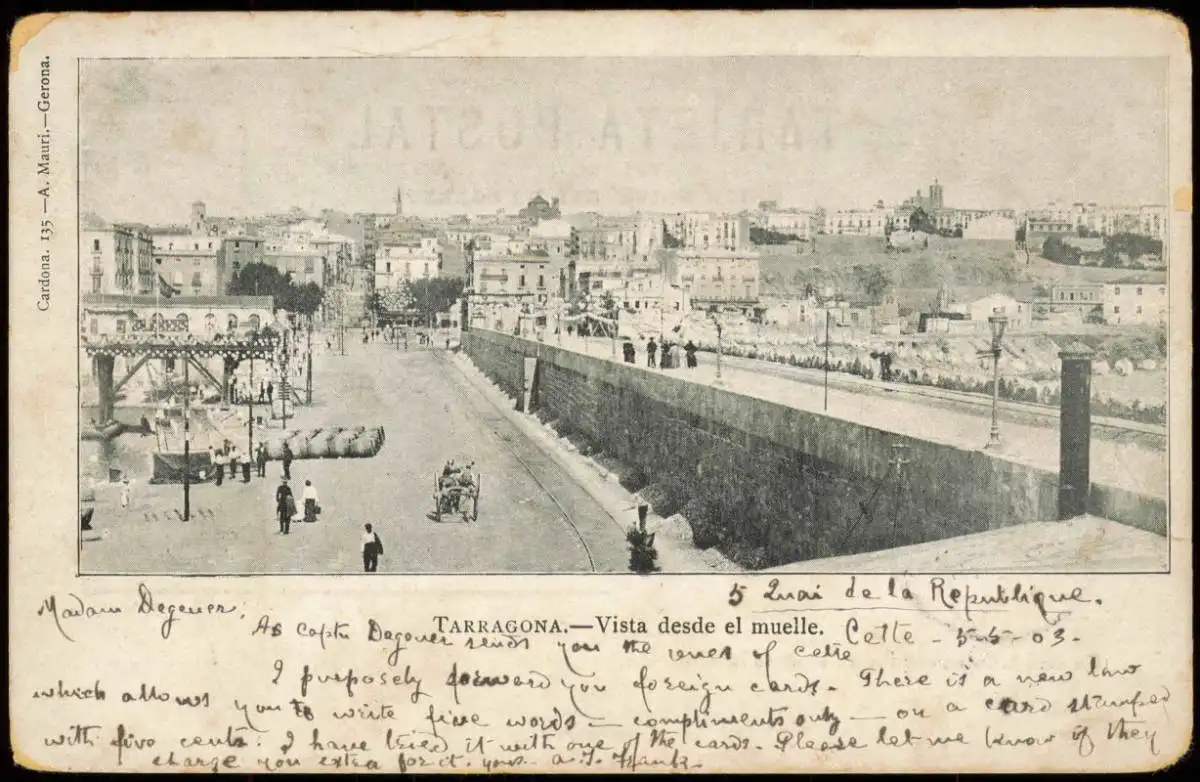 Cardona. 135 —A. Mauri.—Gerona.
TARJETA POSTAL
TARRAGONA.—Vista desde el muelle.
5 Quai de la République.
Cette - 5-5-03.
Madam Degener,
As captn Degener sends you the ones of cette
I purposely forward you foreign cards. There is a new law
which allows you to write five words - compliments only - on a card stamped
with five cents. I have tried it with one of the cards. Please let me know if they
charge you extra for it. yours